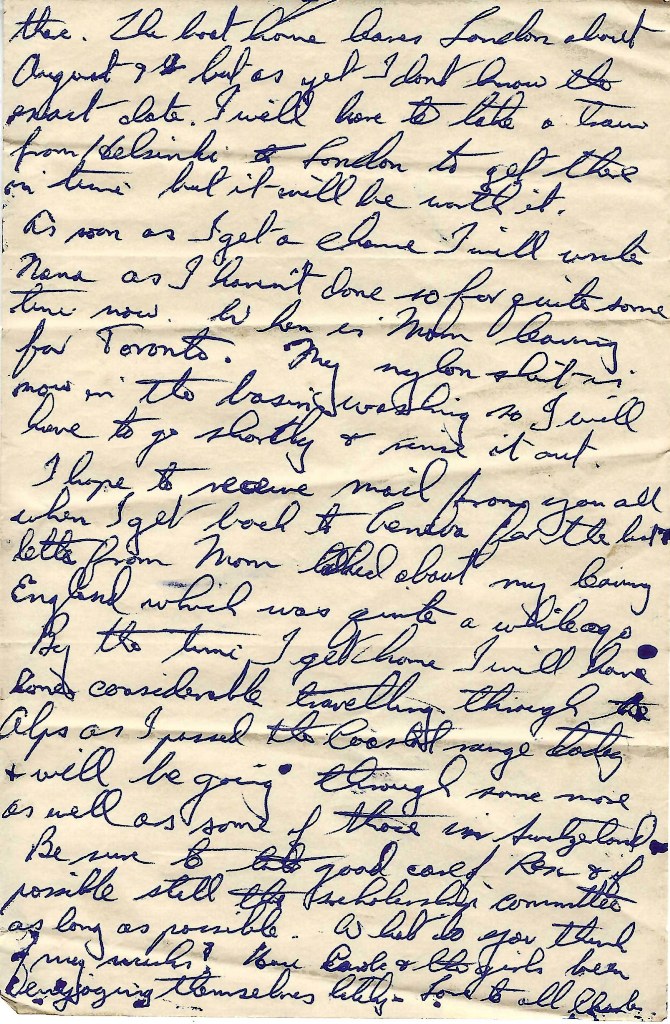 there. The boat home leaves London about
August 9th but as yet I dont know the
exact date. I will have to take a train
from Helsinki to London to get there
in time but it will be worth it.
As soon as I get a chance I will write
Nana as I haven't done so for quite some
time now. When is Mom leaving
for Toronto. My nylon shirt is
now in the basin washing so I will
have to go shortly & rinse it out.
I hope to receive mail from you all
when I get back to Geneva for the last
letter from Mom talked about my leaving
England which was quite a while ago.
By the time I get home I will have
done considerable travelling through the
Alps as I passed the Coastal range today
& will be going through some more
as well as some of those in Switzerland.
Be sure to take good care of Rex & if
possible stall the scholarship committee
as long as possible. What do you think
of my marks? Have Carole & the girls been
enjoying themselves lately - Love to all